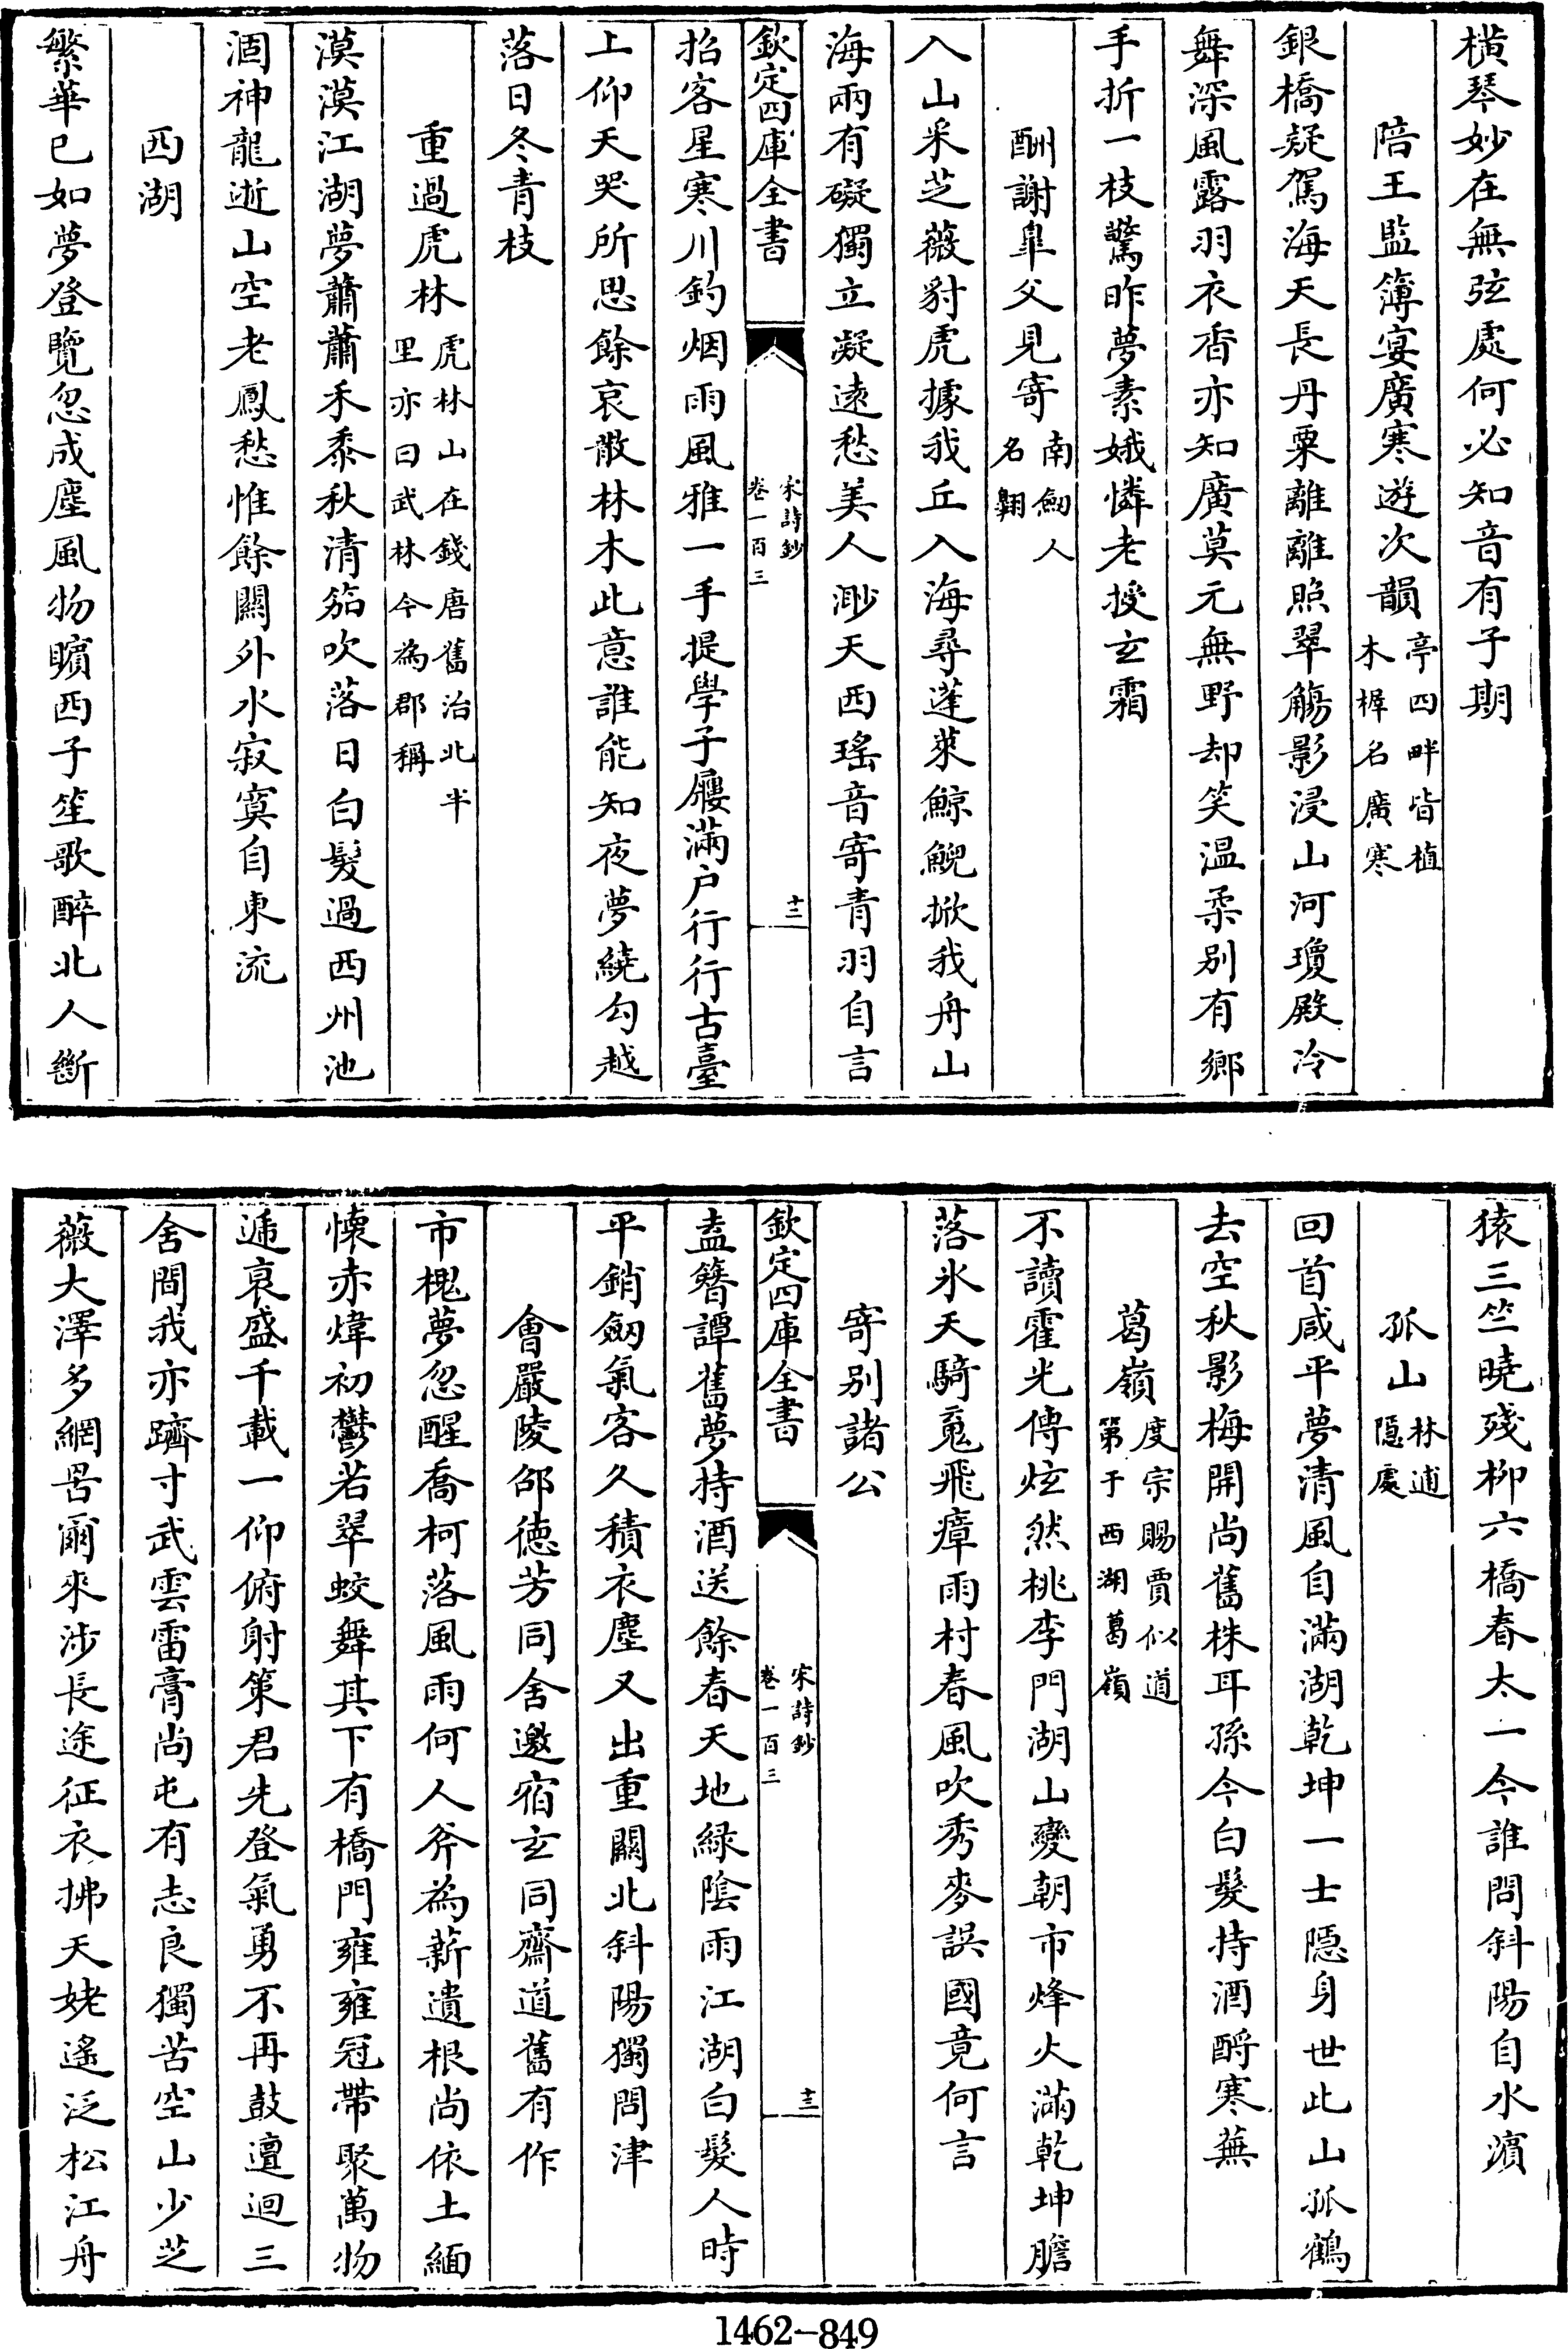 橫琴妙在無弦處何必知音有子期
陪王監簿宴廣寒遊次韻亭四畔皆植木樨名廣寒
銀橋疑駕海天長丹粟離離照翠觴影浸山河瓊殿冷
舞深風露羽衣香亦知廣莫元無野却笑温柔别有鄉
手折一枝驚昨夢素娥憐老授玄霜
酬謝臯父見寄南劒人名翺
入山采芝薇豺虎據我丘入海尋蓬萊鯨鯢掀我舟山
海兩有礙獨立凝遠愁美人渺天西瑤音寄青羽自言
欽定四庫全書
宋詩鈔
卷一百三
十二
招客星寒川釣烟雨風雅一手提學子屨滿户行行古臺
上仰天哭所思餘哀散林木此意誰能知夜夢繞勾越
落日冬青枝
重過虎林虎林山在錢唐舊治北半里亦曰武林今為郡稱
漠漠江湖夢蕭蕭禾黍秋清笳吹落日白髮過西州池
涸神龍逝山空老鳳愁惟餘關外水寂寞自東流
西湖
繁華已如夢登覽忽成塵風物矉西子笙歌醉北人斷
猿三竺曉殘柳六橋春太一今誰問斜陽自水濵
孤山林逋隱處
回首咸平夢清風自滿湖乾坤一士隱身世此山孤鶴
去空秋影梅開尚舊株耳孫今白髮持酒酹寒蕪
葛嶺度宗賜賈似道第于西湖葛嶺
不讀霍光傳炫然桃李門湖山變朝市烽火滿乾坤膽
落氷天騎䰟飛瘴雨村春風吹秀麥誤國竟何言
寄别諸公
欽定四庫全書
宋詩鈔
卷一百三
十三
盍簪譚舊夢持酒送餘春天地緑陰雨江湖白髮人時
平銷劒氣客久積衣塵又出重關北斜陽獨問津
會嚴陵邵德芳同舍邀宿玄同齋道舊有作
市槐夢忽醒喬柯落風雨何人斧為薪遺根尚依土緬
懐赤煒初鬱若翠蛟舞其下有橋門雍雍冠帶聚萬物
逓衰盛千載一仰俯射策君先登氣勇不再鼓邅迴三
舍間我亦躋寸武雲雷膏尚屯有志良獨苦空山少芝
薇大澤多網罟爾來涉長途征衣拂天姥遙泛松江舟
1462-849